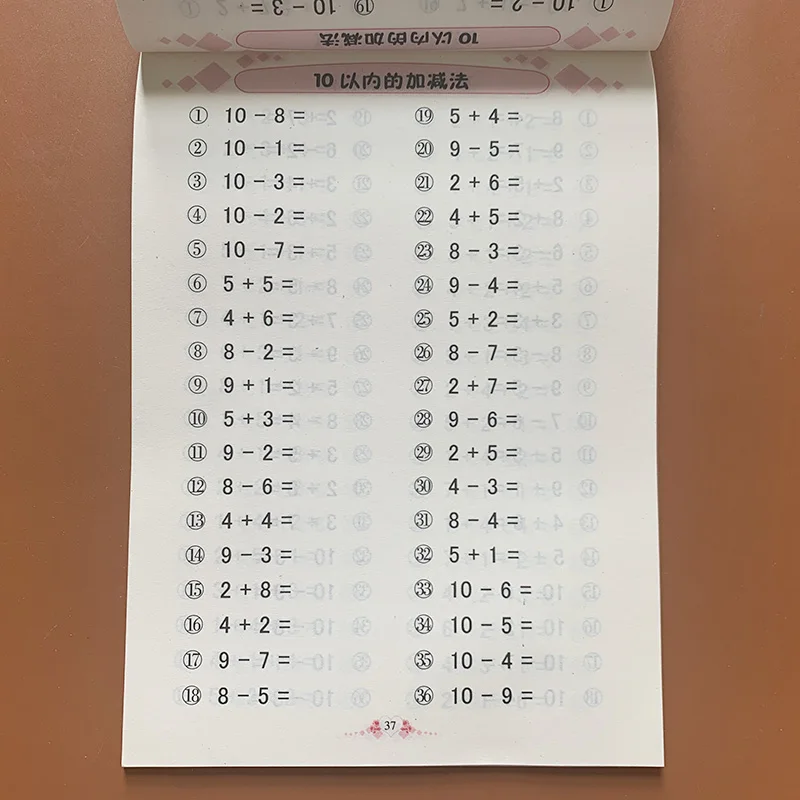 10 以内的加减法
10 以内的加减法
① 10 − 8 =
② 10 − 1 =
③ 10 − 3 =
④ 10 − 2 =
⑤ 10 − 7 =
⑥ 5 + 5 =
⑦ 4 + 6 =
⑧ 8 − 2 =
⑨ 9 + 1 =
⑩ 5 + 3 =
⑪ 9 − 2 =
⑫ 8 − 6 =
⑬ 4 + 4 =
⑭ 9 − 3 =
⑮ 2 + 8 =
⑯ 4 + 2 =
⑰ 9 − 7 =
⑱ 8 − 5 =
⑲ 5 + 4 =
⑳ 9 − 5 =
㉑ 2 + 6 =
㉒ 4 + 5 =
㉓ 8 − 3 =
㉔ 9 − 4 =
㉕ 5 + 2 =
㉖ 8 − 7 =
㉗ 2 + 7 =
㉘ 9 − 6 =
㉙ 2 + 5 =
㉚ 4 − 3 =
㉛ 8 − 4 =
㉜ 5 + 1 =
㉝ 10 − 6 =
㉞ 10 − 5 =
㉟ 10 − 4 =
㊱ 10 − 9 =
37